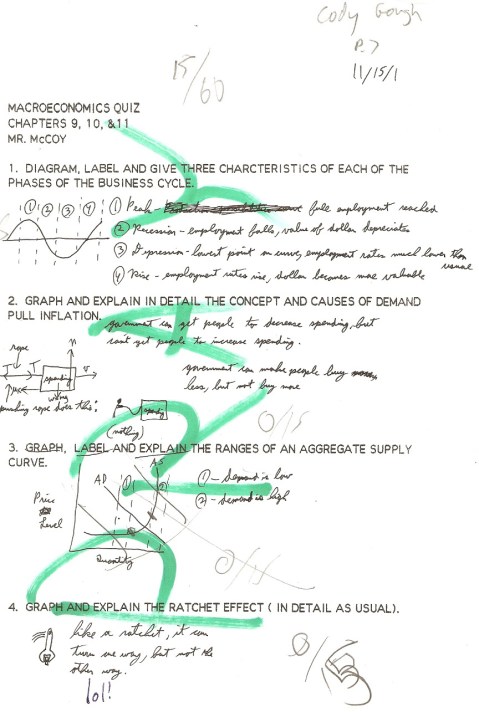 Cody Gough
P. 7
11/15/1
15/60
MACROECONOMICS QUIZ
CHAPTERS 9, 10, &11
MR. McCOY
1. DIAGRAM, LABEL AND GIVE THREE CHARCTERISTICS OF EACH OF THE
PHASES OF THE BUSINESS CYCLE.
① ② ③ ④ ① Peak - full employment reached
② Recession - employment falls, value of dollar depreciates
③ Depression - lowest point on curve, employment rates much lower than
usual
④ Rise - employment rates rise, dollar becomes more valuable
2. GRAPH AND EXPLAIN IN DETAIL THE CONCEPT AND CAUSES OF DEMAND
PULL INFLATION.
government can get people to decrease spending, but
can't get people to increase spending.
rope
T T
n
v
spending
government can make people buy
less, but not buy more
pushing rope does this:
spending
(nothing)
0/15
3. GRAPH, LABEL AND EXPLAIN THE RANGES OF AN AGGREGATE SUPPLY
CURVE.
AS
AD
① ②
① - demand is low
② - demand is high
Price
Level
Quantity
0/15
4. GRAPH AND EXPLAIN THE RATCHET EFFECT ( IN DETAIL AS USUAL).
like a ratchet, it can
turn one way, but not the
other way.
lol!
0/15